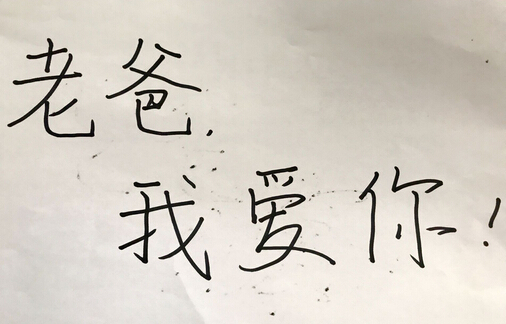 老爸，
我爱你！